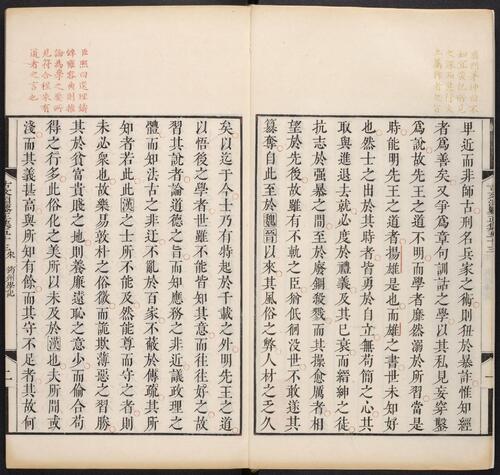 卑近而非師古刑名兵家之術則狃於暴詐惟知經
者為善矣又爭為章句訓詁之學以其私見妄穿鑿
為說故先王之道不明而學者靡然溺於所習當是
時能明先王之道者揚雄是也而雄之書世未知好
也然士之出於其時者皆勇於自立無苟簡之心其
取與進退去就必度於禮義及其已衰而縉紳之徒
抗志於強暴之間至於廢錮殺戮而其操愈厲者相
望於先後故雖有不軌之臣猶低徊沒世不敢遂其
篡奪自此至於魏晉以來其風俗之弊人材之乏久
臣照曰理鑄
雍容典則推
論為學之要所
見符合程朱有
道者之言也
矣以迄于今士乃有特起於千載之外明先王之道
以悟後之學者世雖不能皆知其意而往往好之故
習其說者論道德之旨而知應務之非近議政理之
體而知法古之非迂不亂於百家不蔽於傳疏其所
知者若此此漢之士所不能及然能尊而守之者則
未必衆也故樂易敦朴之俗微而詭欺薄惡之習勝
其於貧富貴賤之地則養廉遠恥之意少而偷合苟
得之行多此俗化之美所以未及於漢也夫所聞或
淺而其義甚高與所知有餘而其守不足者其故何
筠州學記
二